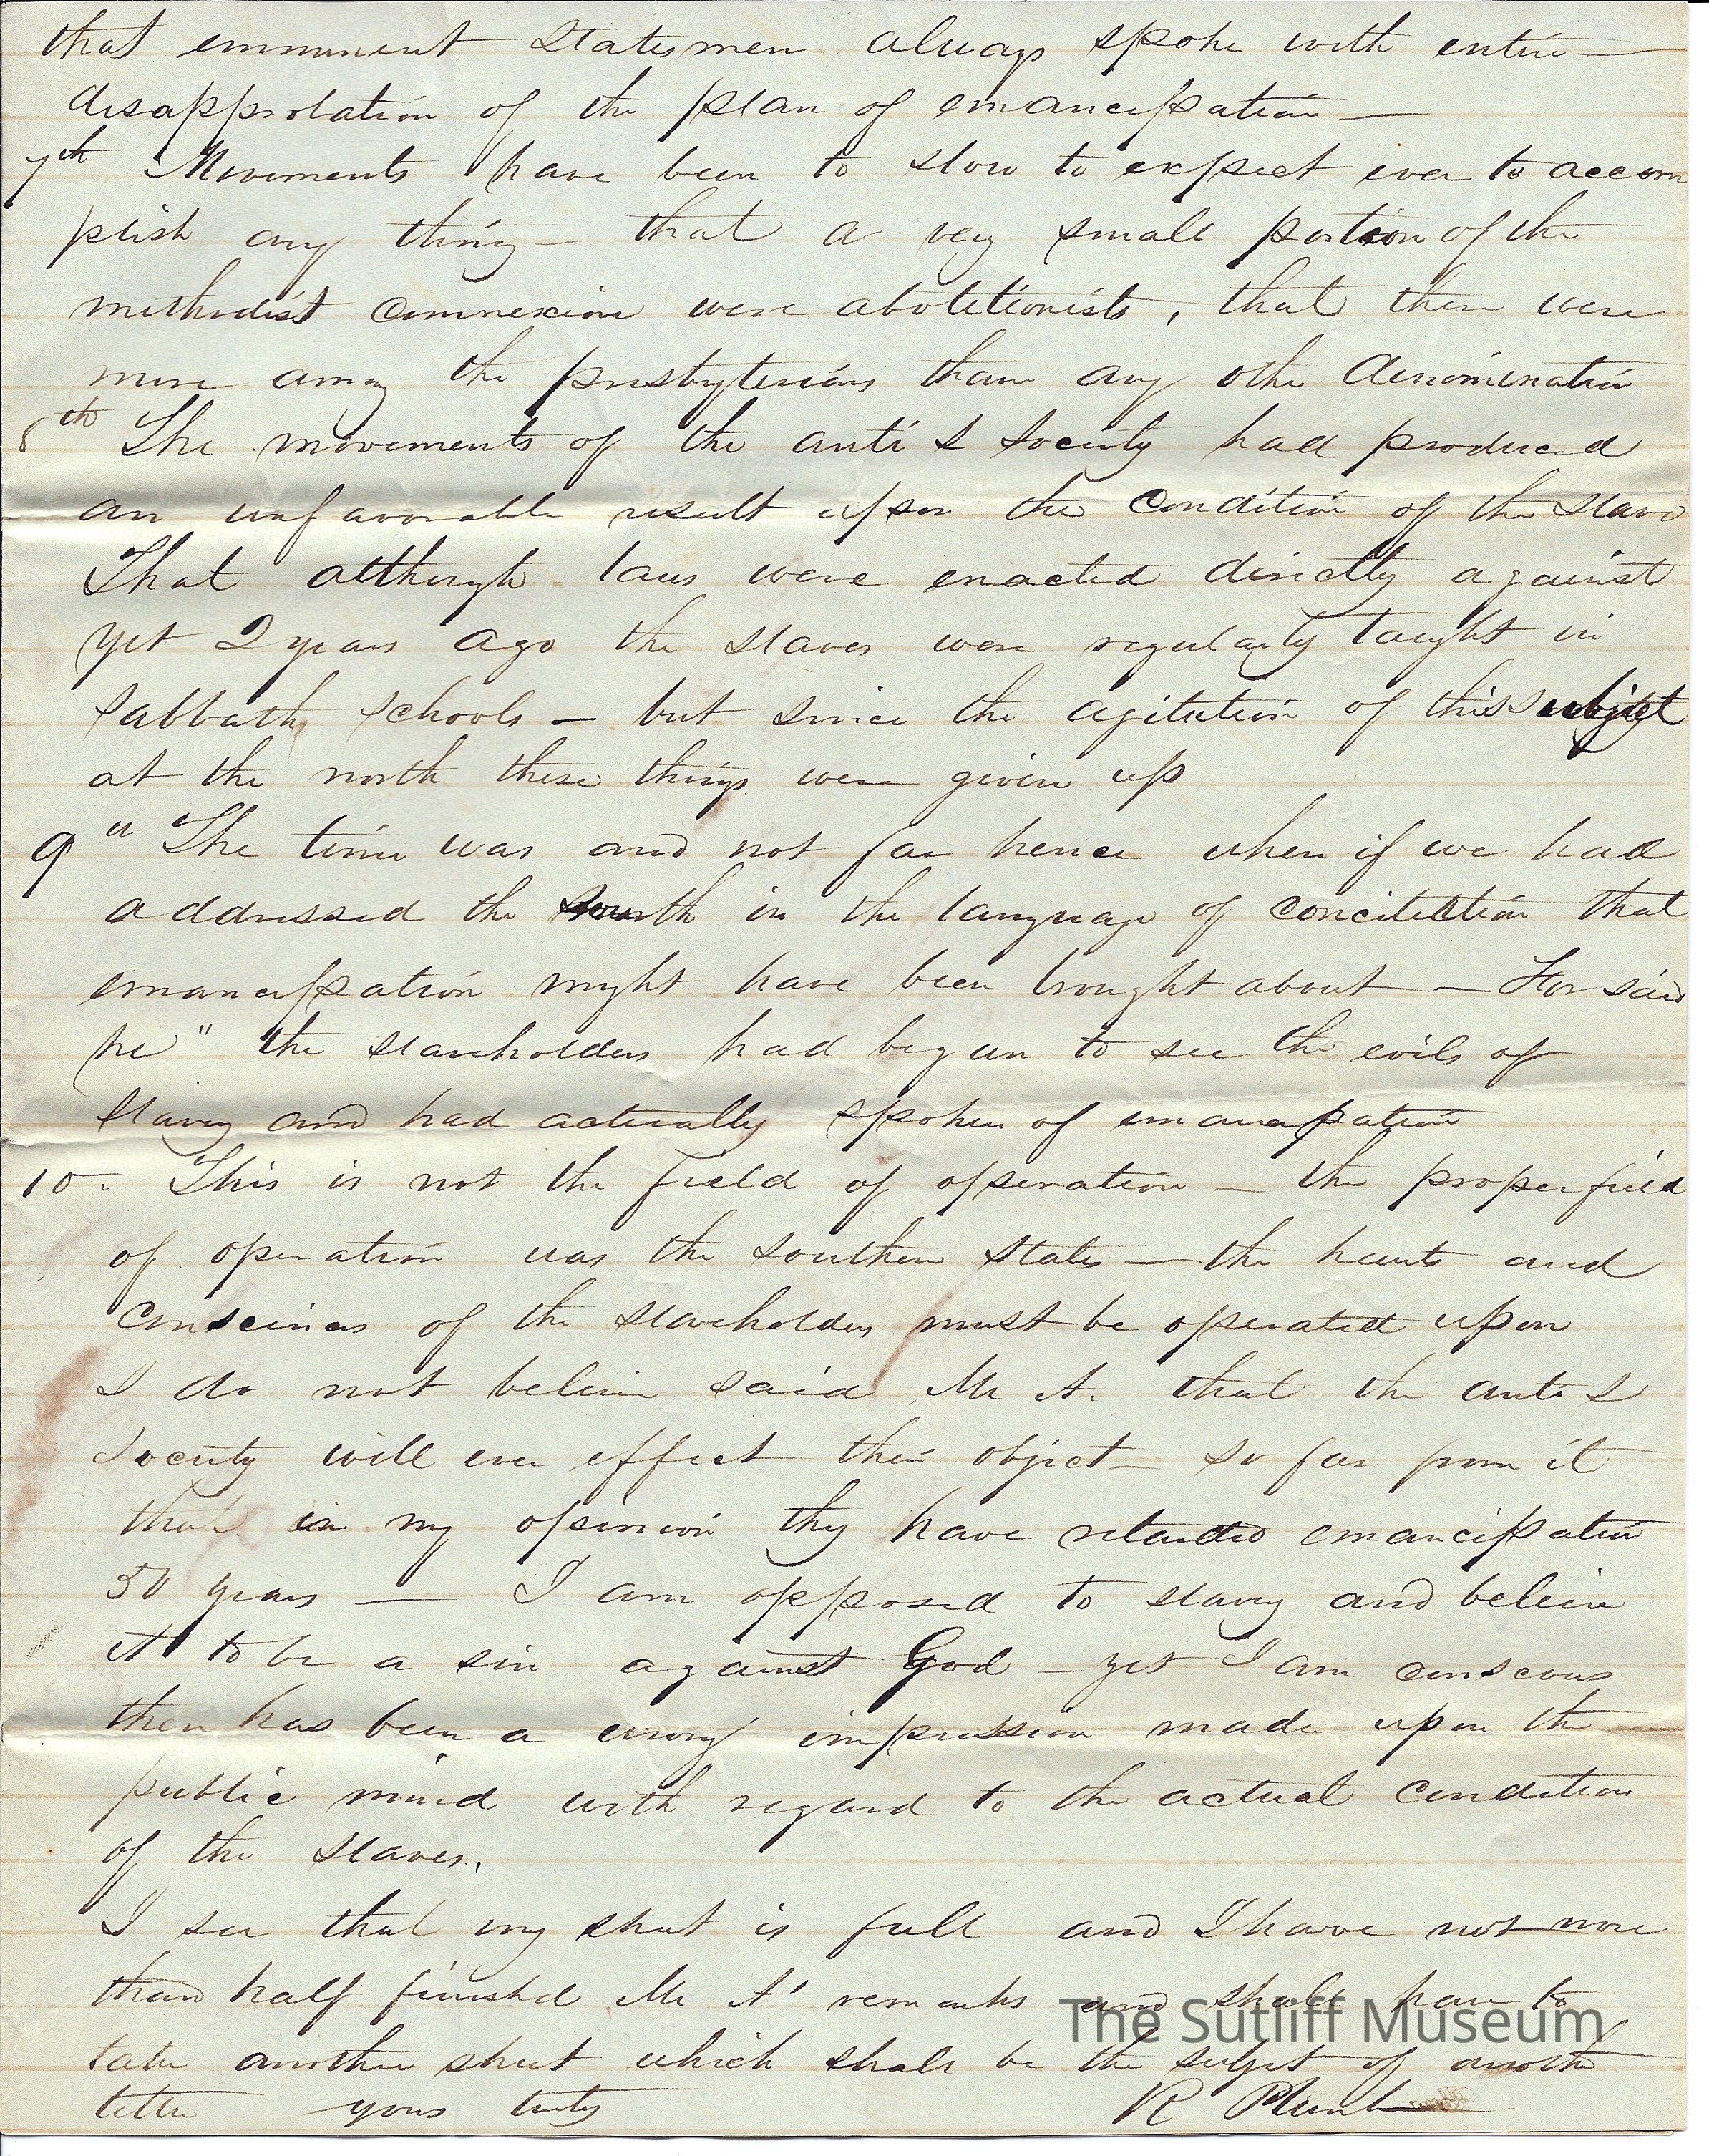 that emminent statesmen always spoke with entire —
disapprobation of the plan of emancipation —
7th Movements have been to slow to expect ever to accom
plish any thing — that a very small portion of the
methodist connexion were abolitionists, that there were
more among the presbyterians than any othe denomination
8th The movements of the anti S Society had produced
an unfavorable result upon the condition of the slave
That although laws were enacted directly against
yet 2 years ago the slaves were regularly taught in
Sabbath Schools — but since the agitation of this subject
at the north these things were given up
9 " The time was and not far hence when if we had
addressed the south in the language of conciliation that
emancipation might have been brought about — For said
he " the slaveholders had begun to see the evils of
slavery and had actually spoken of emancipation
10. This is not the field of operation — the proper field
of operation was the southern states — the hearts and
consciences of the slaveholders must be operated upon
I do not believe said Mr A. that the anti S
Society will ever effect their object — so far from it
that in my opinion they have retarded emancipation
50 years — I am opposed to slavery and believe
it to be a sin against God — yet I am conscous
there has been a wrong impression made upon the
public mind with regard to the actual condition
of the slaves.
I see that my sheet is full and I have not more
than half finished Mr A' remarks and shall have to
take another sheet which shall be the subject of another
letter yours truly R
The Sutliff Museum